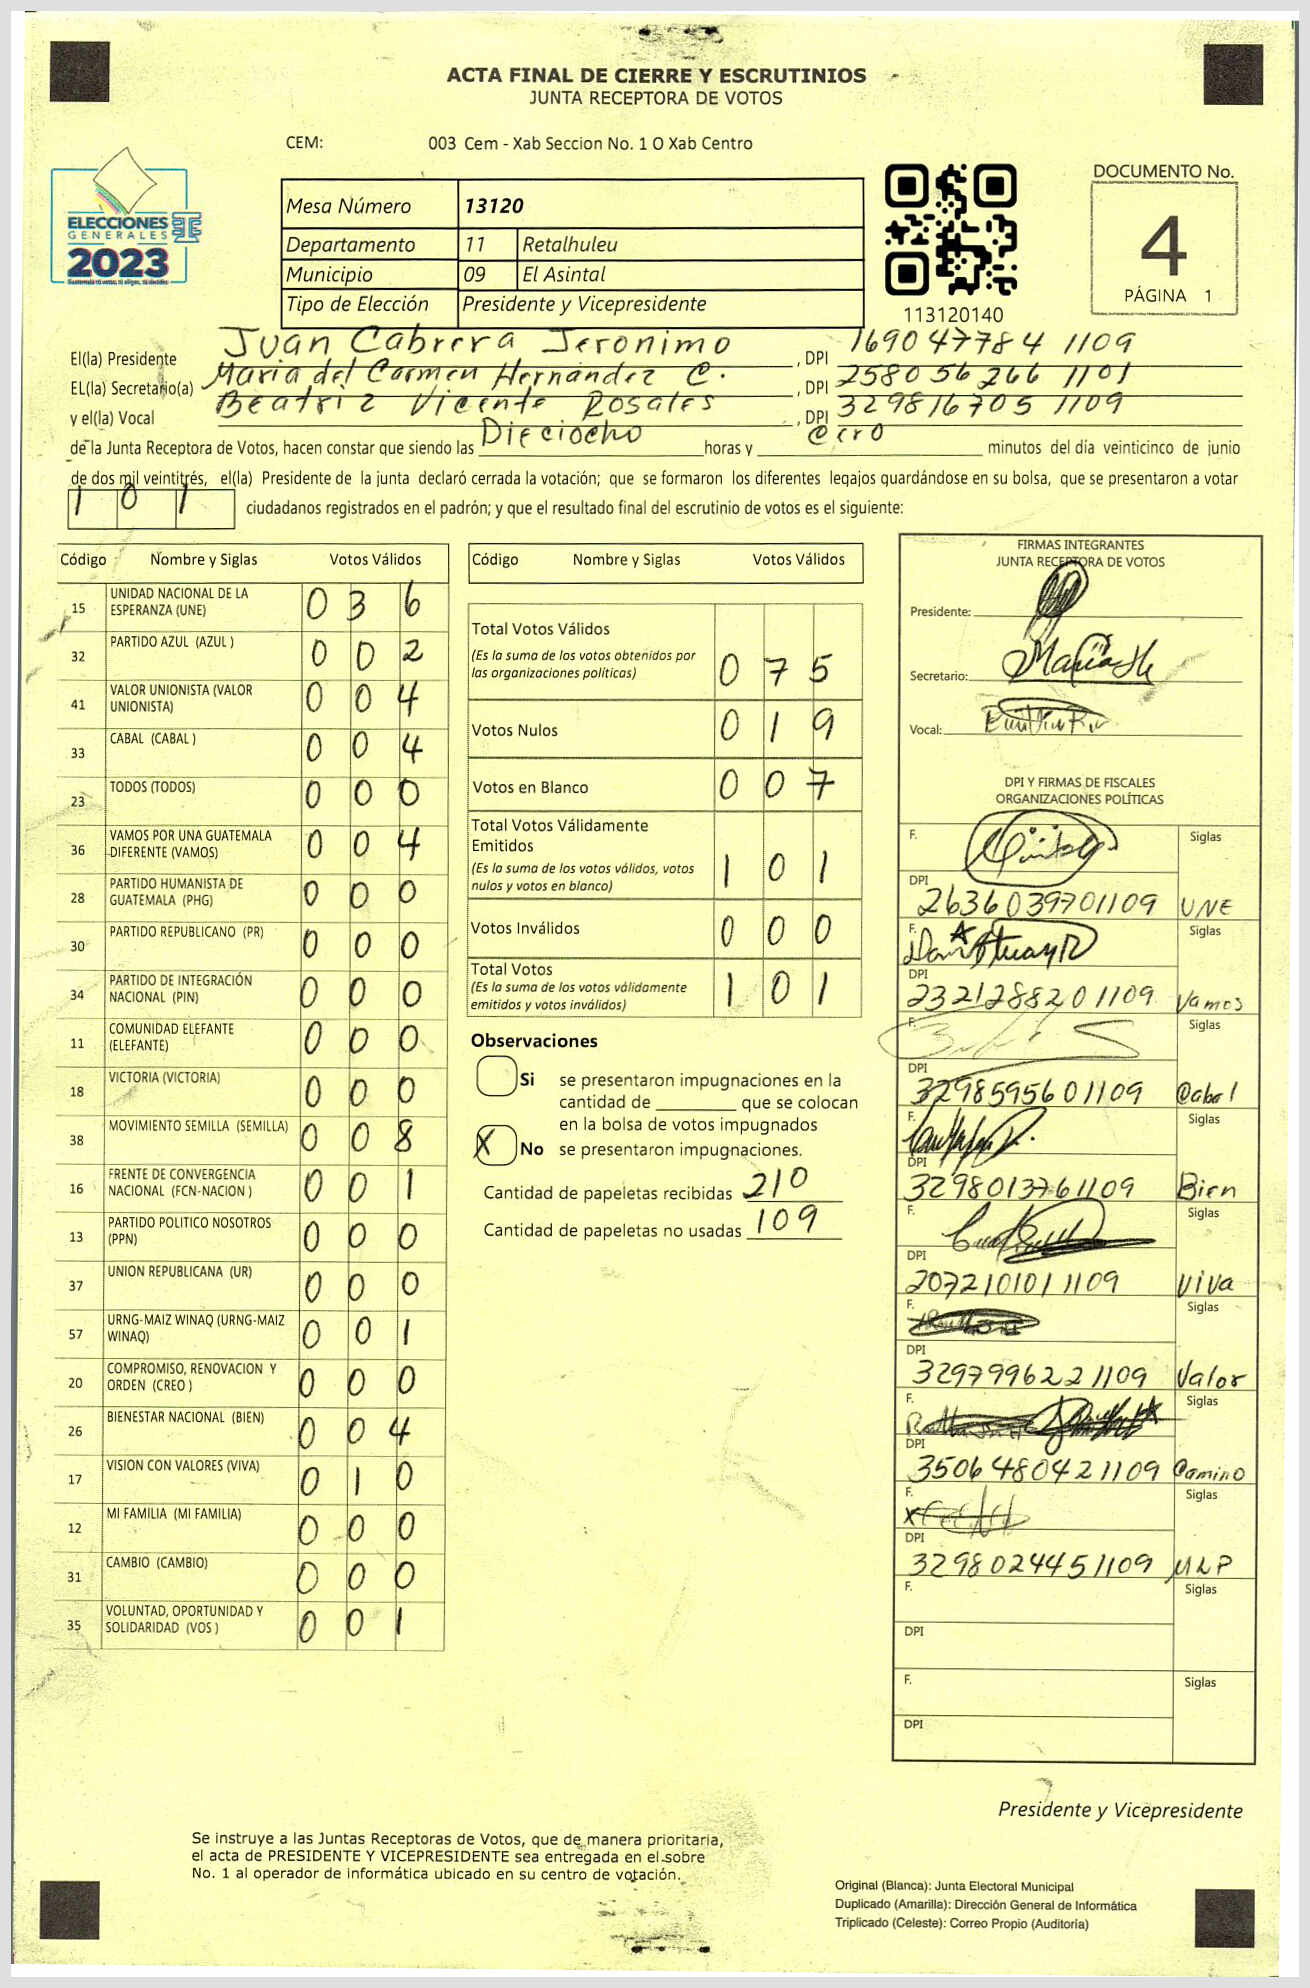 ACTA FINAL DE CIERRE Y ESCRUTINIOS
JUNTA RECEPTORA DE VOTOS
CEM: 003 Cem - Xab Seccion No. 1 O Xab Centro
ELECCIONES
GENERALES
2023
Mesa Número 13120
Departamento 11 Retalhuleu
Municipio 09 El Asintal
Tipo de Elección Presidente y Vicepresidente
113120140
DOCUMENTO No.
4
PÁGINA 1
El(la) Presidente Juan Cabrera Jeronimo, DPI 169047784 1109
EL(la) Secretario(a) Maria del Carmen Hernández C., DPI 258056266 1101
y el(la) Vocal Beatriz Vicente Rosales, DPI 329816705 1109
de la Junta Receptora de Votos, hacen constar que siendo las Dieciocho horas y cero minutos del día veinticinco de junio
de dos mil veintitrés, el(la) Presidente de la junta declaró cerrada la votación; que se formaron los diferentes legajos quardándose en su bolsa, que se presentaron a votar
101 ciudadanos registrados en el padrón; y que el resultado final del escrutinio de votos es el siguiente:
Código Nombre y Siglas Votos Válidos
15 UNIDAD NACIONAL DE LA ESPERANZA (UNE) 036
32 PARTIDO AZUL (AZUL ) 002
41 VALOR UNIONISTA (VALOR UNIONISTA) 004
33 CABAL (CABAL ) 004
23 TODOS (TODOS) 000
36 VAMOS POR UNA GUATEMALA DIFERENTE (VAMOS) 004
28 PARTIDO HUMANISTA DE GUATEMALA (PHG) 000
30 PARTIDO REPUBLICANO (PR) 000
34 PARTIDO DE INTEGRACIÓN NACIONAL (PIN) 000
11 COMUNIDAD ELEFANTE (ELEFANTE) 000
18 VICTORIA (VICTORIA) 000
38 MOVIMIENTO SEMILLA (SEMILLA) 008
16 FRENTE DE CONVERGENCIA NACIONAL (FCN-NACION ) 001
13 PARTIDO POLITICO NOSOTROS (PPN) 000
37 UNION REPUBLICANA (UR) 000
57 URNG-MAIZ WINAQ (URNG-MAIZ WINAQ) 001
20 COMPROMISO, RENOVACION Y ORDEN (CREO ) 000
26 BIENESTAR NACIONAL (BIEN) 004
17 VISION CON VALORES (VIVA) 010
12 MI FAMILIA (MI FAMILIA) 000
31 CAMBIO (CAMBIO) 000
35 VOLUNTAD, OPORTUNIDAD Y SOLIDARIDAD (VOS ) 001
Código Nombre y Siglas Votos Válidos
Total Votos Válidos
(Es la suma de los votos obtenidos por las organizaciones políticas) 075
Votos Nulos 019
Votos en Blanco 007
Total Votos Válidamente Emitidos
(Es la suma de los votos válidos, votos nulos y votos en blanco) 101
Votos Inválidos 000
Total Votos
(Es la suma de los votos válidamente emitidos y votos inválidos) 101
Observaciones
Si se presentaron impugnaciones en la
cantidad de ________ que se colocan
en la bolsa de votos impugnados
X No se presentaron impugnaciones.
Cantidad de papeletas recibidas 210
Cantidad de papeletas no usadas 109
FIRMAS INTEGRANTES
JUNTA RECEPTORA DE VOTOS
Presidente:
Secretario:
Vocal:
DPI Y FIRMAS DE FISCALES
ORGANIZACIONES POLÍTICAS
F. Siglas
DPI 2636039701109 UNE
F. Siglas
DPI 2321288201109 Vamos
F. Siglas
DPI 3298595601109 Cabal
F. Siglas
DPI 3298013761109 Bien
F. Siglas
DPI 2072101011109 Viva
F. Siglas
DPI 3297996221109 Valor
F. Siglas
DPI 3506480421109 Camino
F. Siglas
DPI 3298024451109 MLP
F. Siglas
DPI
F. Siglas
DPI
Presidente y Vicepresidente
Se instruye a las Juntas Receptoras de Votos, que de manera prioritaria,
el acta de PRESIDENTE Y VICEPRESIDENTE sea entregada en el sobre
No. 1 al operador de informática ubicado en su centro de votación.
Original (Blanca): Junta Electoral Municipal
Duplicado (Amarilla): Dirección General de Informática
Triplicado (Celeste): Correo Propio (Auditoría)